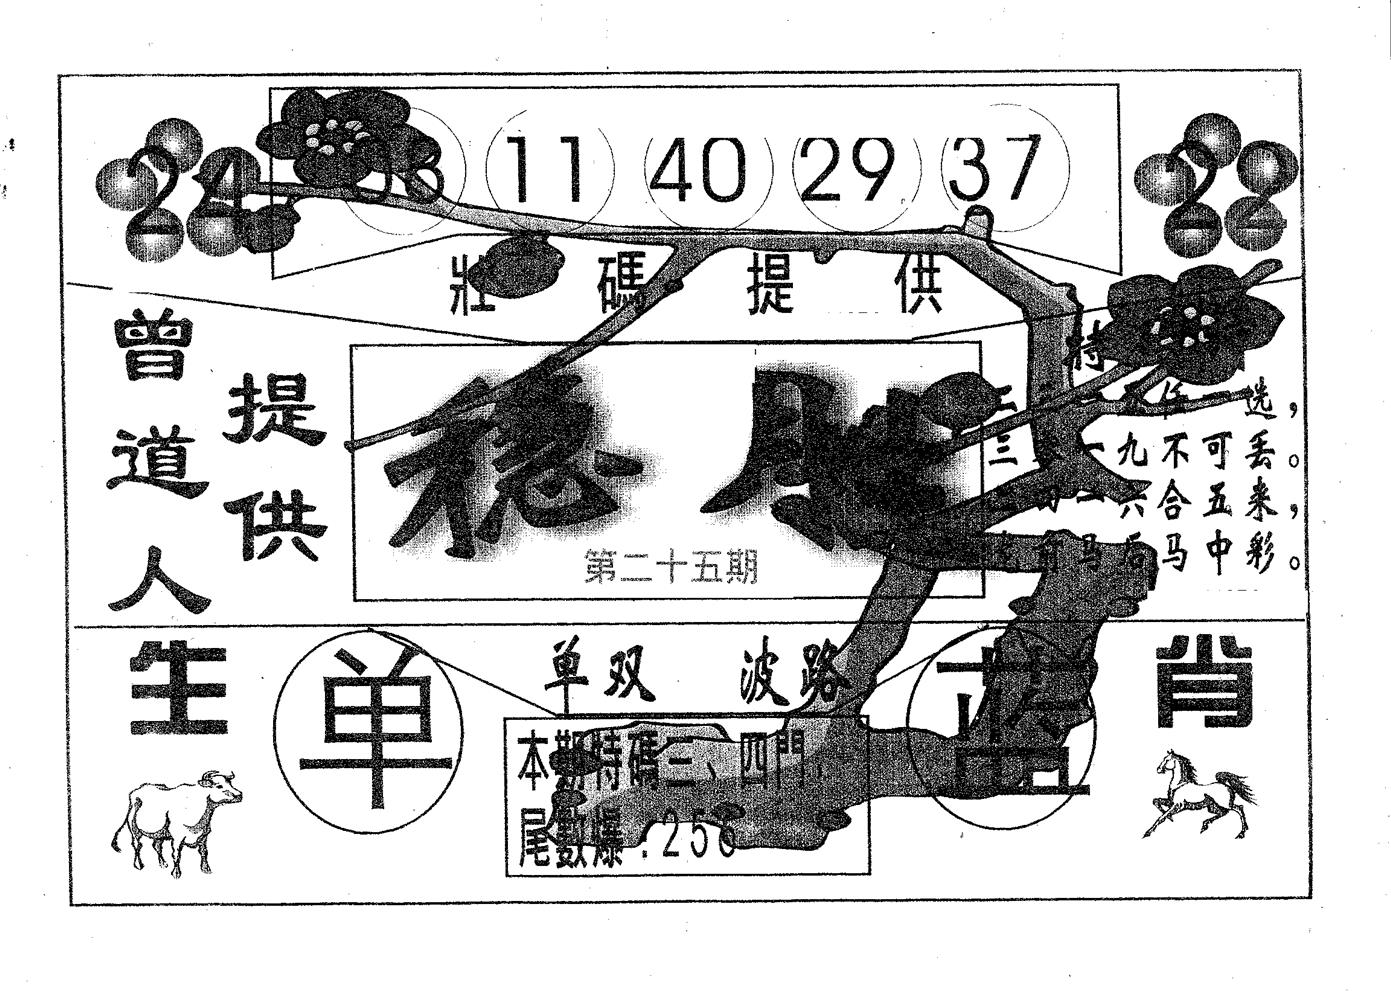 24
11 40 29 37
22
壯碼提供
曾道人
提供
稳胜
第二十五期
特
选，
三 一九不可丢。
一六合五来，
马后马中彩。
生肖
单
蓝
单双 波路
本期特碼三、四門
尾數爆:256